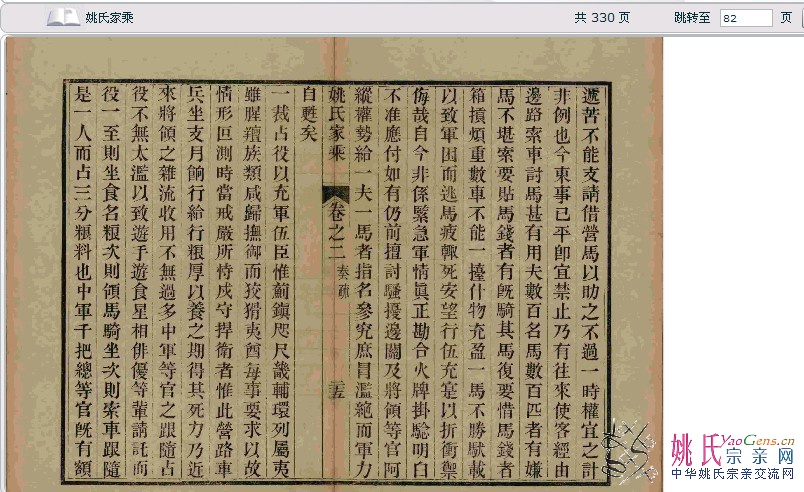 姚氏家乘
共 330 页
跳转至 82 页
遞苦不能支請借營馬以助之不過一時權宜之計
非例也今東事已平卽宜禁止乃有往來使客經由
邊路索車討馬甚有用夫數百名馬數百匹者有嫌
馬不堪索要貼馬錢者有旣騎其馬復要惜馬錢者
箱損煩重數車不能一擡什物充盈一馬不勝馱載
以致軍困而逃馬疲輙死安望行伍充寔以折衝禦
侮哉自今非係緊急軍情眞正勘合火牌掛驗明白
不准應付如有仍前擅討騷擾邊關及將領等官阿
縱權勢給一夫一馬者指名參究庶冒濫絶而軍力
姚氏家乘
卷之二
奏疏
二五
自甦矣
一裁占役以充軍伍臣惟薊鎭咫尺畿輔環列屬夷
雖腥羶族類咸歸撫御而狡猾夷酋每事要求以故
情形叵測時當戒嚴所恃戍守捍衛者惟此營路車
兵坐支月餉行給行粮厚以養之期得其死力乃近
來將領之雜流收用不無過多中軍等官之跟隨占
役不無太濫以致遊手遊食星相俳優等輩請託而
役一至則坐食名粮次則領馬騎坐次則索車跟隨
是一人而占三分粮料也中軍千把總等官旣有額
姚氏YaoGens.cn
宗亲网
中华姚氏宗亲交流网